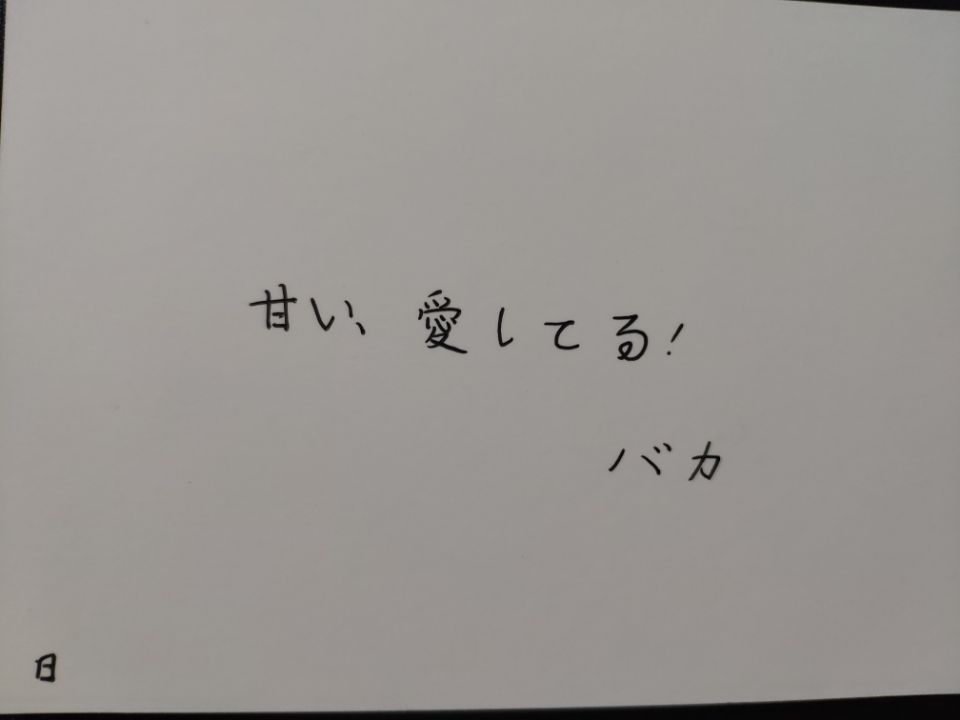 甘い、愛してる!
バカ
日